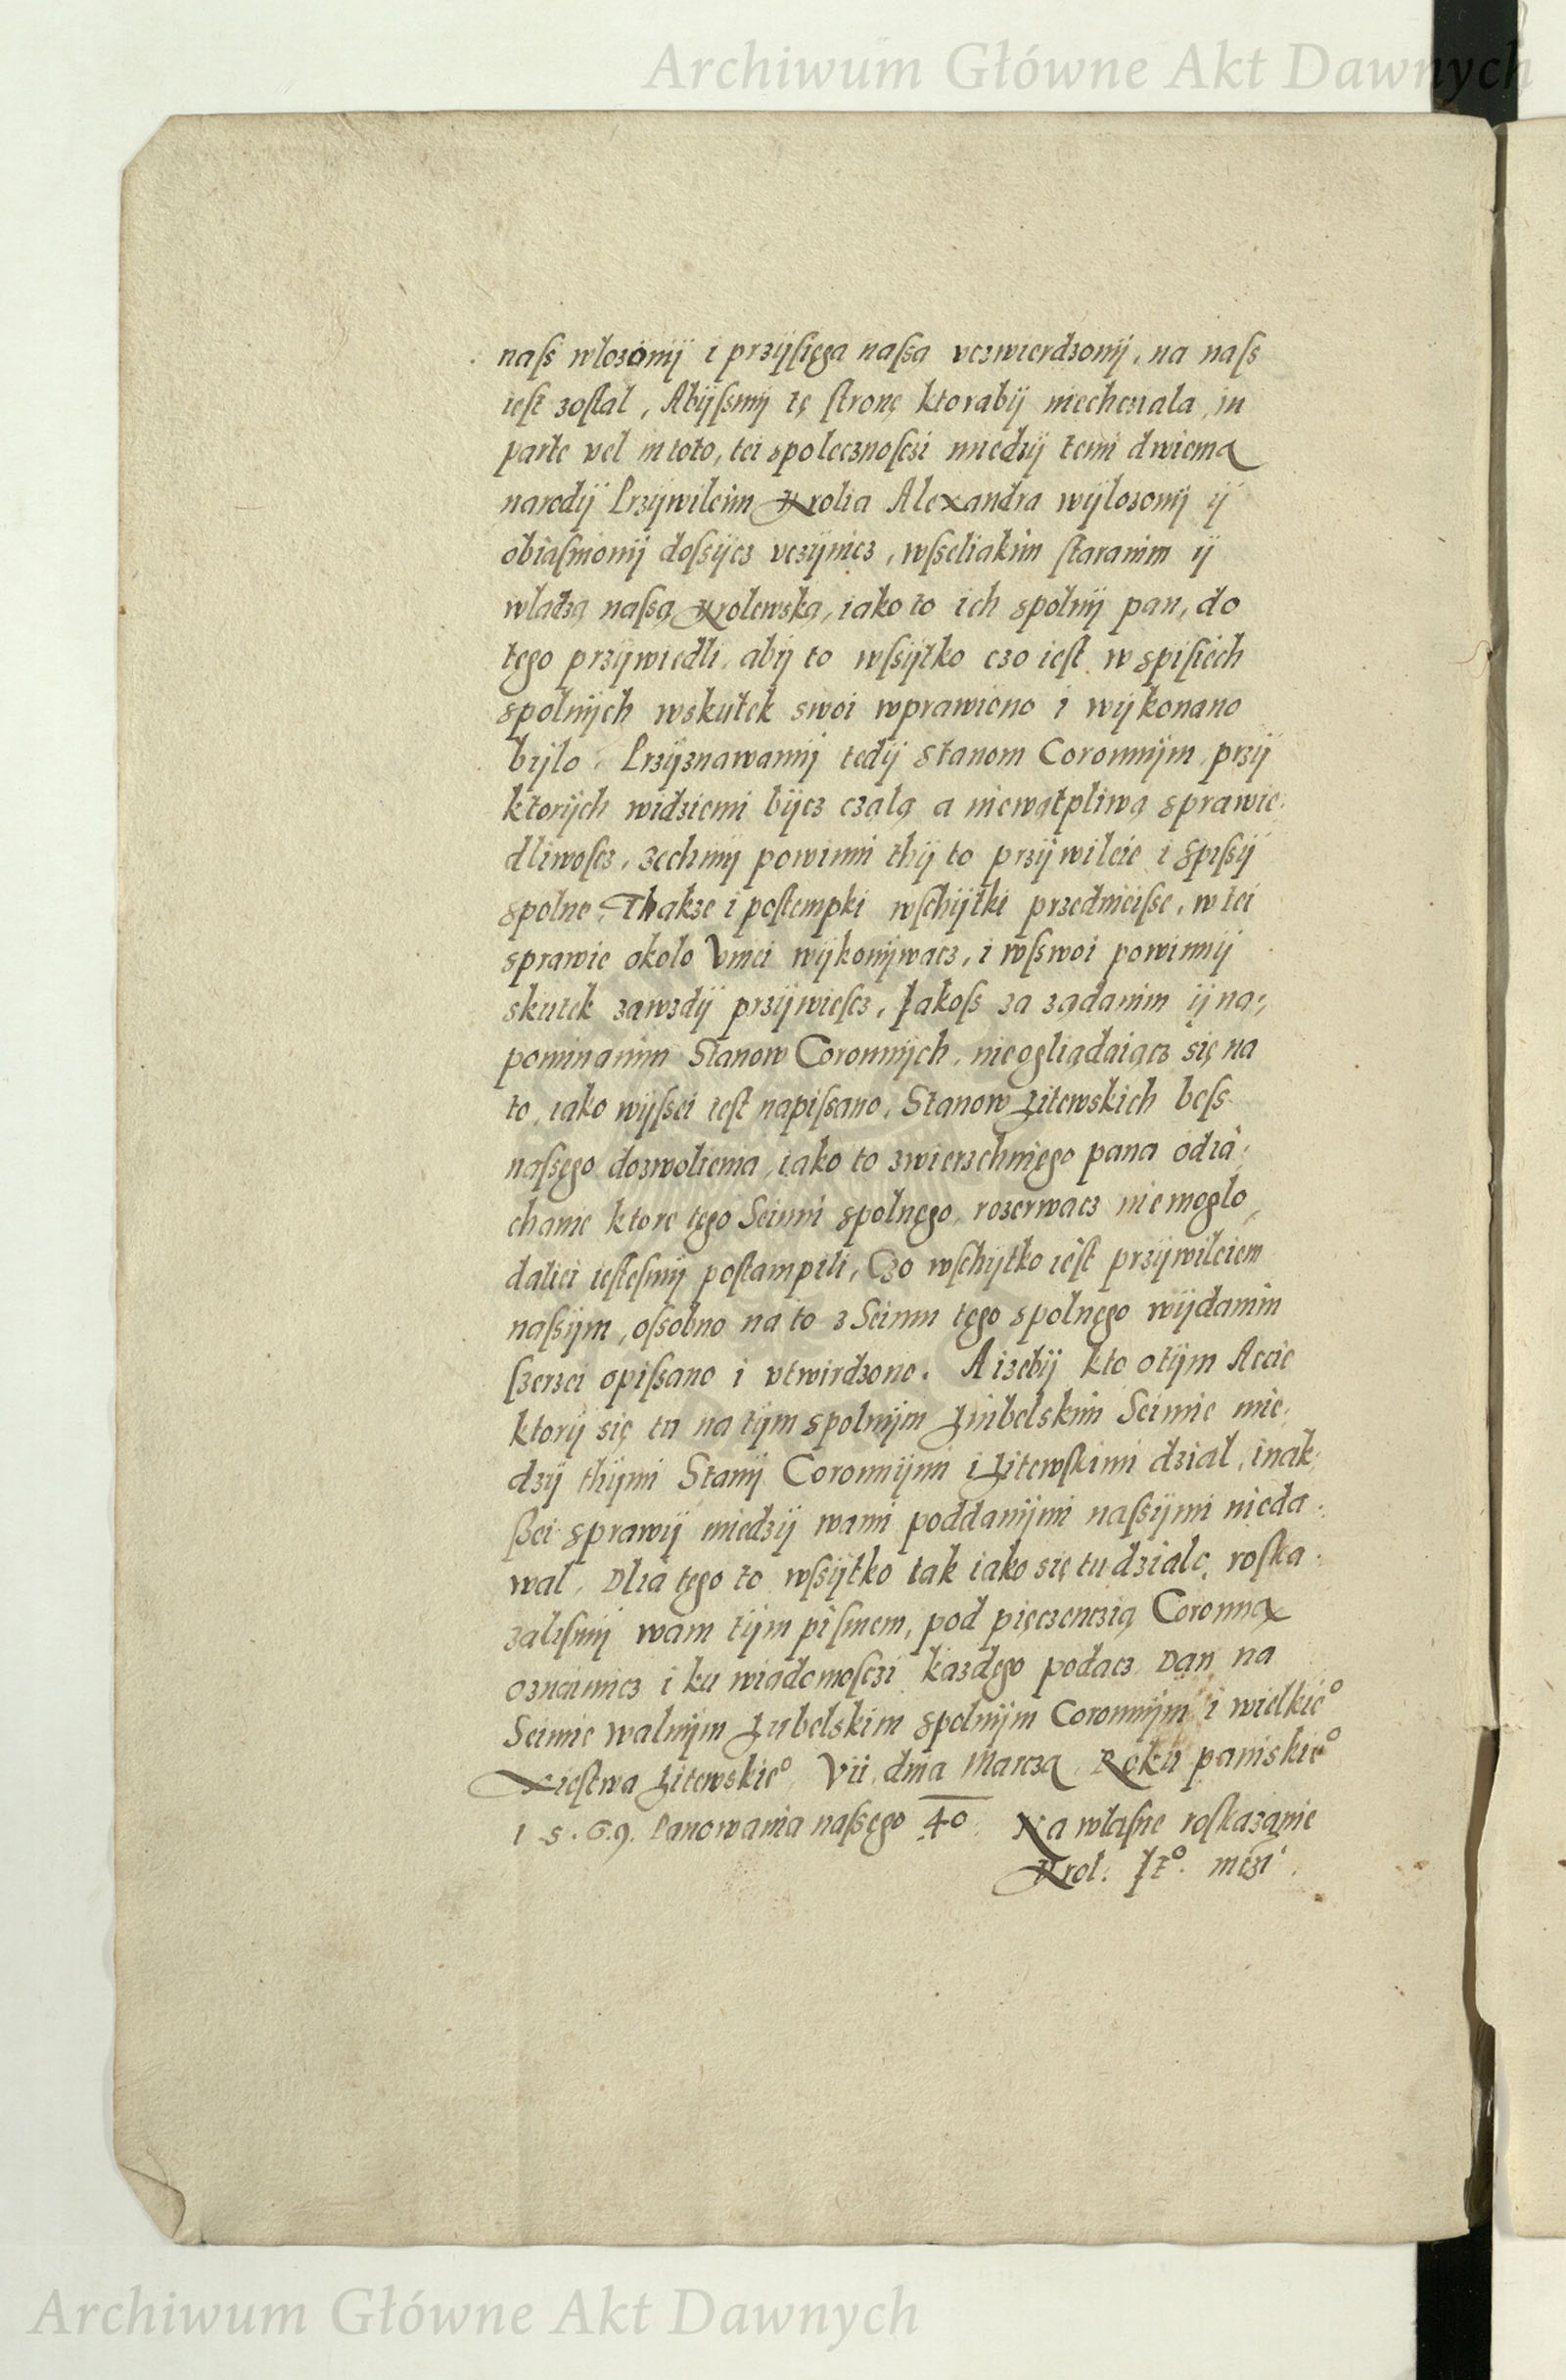 Archiwum Główne Akt Dawnych
naſs wlozonÿ i przÿſięga naſsą vczwierdzonÿ, na naſs
ieſt zoſtal, Abÿſsmÿ tę ſtronę ktorabÿ niechcziala in
parte vel in toto, tei spolecznoſczi miedzÿ temi dwiema
narodÿ Przÿwileim Krolia Alexandra wÿlozonÿ ÿ
obiaſnionÿ doſsÿcz vczÿnicz, wſseliakim ſtaranim ÿ
wladzą naſsą Krolewską, iako to ich spolnÿ pan, do
tego przÿwiedli, abÿ to wſsÿtko czo ieſt w spiſiech
spolnÿch wskutek swoi wprawiono i wÿkonano
bÿlo. Przÿznawamÿ tedÿ Stanom Coronnÿm, przÿ
ktorÿch widziemi bÿcz czalą a niewątpliwą sprawie:
dliwoſcz, zechmÿ powinni thÿ to przÿwileie i spiſsÿ
spolne, Thakze i poſtempki wſchÿtki przednieiſse, w tei
sprawie okolo Vniei wÿkonÿwacz, i wſswoi powinnÿ
skutek zawzdÿ przÿwieſcz, Jakoſs za ządanim ÿ na:,
pominanim Stanow Coronnÿch, nieogliądaiącz się na
to, iako wÿſsei ieſt napiſsano, Stanow Litewskich beſs
naſsęgo dozwolienia, iako to zwierzchnięgo pana odia:
chanie ktore tęgo Seimu spolnęgo, rozerwacz niemoglo,
daliei ieſteſmÿ poſtampili, Czo wſchÿtko ieſt przÿwileiem
naſsÿm, oſsobno na to z Seimu tęgo spolnęgo wÿdanim
ſzerzei opiſsano i vtwirdzono. A izebÿ kto otÿm Accie
ktorÿ się tu na tÿm spolnÿm Liubelskim Seimie mie:
dzÿ thÿmi Stanÿ Coronnÿmi i Litewſkimi dzial, inak:
ßei sprawÿ miedzÿ wami poddanÿmi naſsÿmi nieda:
wal, Dlia tęgo to wſsÿtko tak iako się tu dzialo, roſka:
zaliſmÿ wam tÿm piſmem, pod pięczenczią Coronną
oznaimicz i ku wiadomoſczi kazdęgo podacz Dan na
Seimie walnÿm Lubelskim spolnÿm Coronnÿm i wielkieº
Xieſtwa Litewskieº, Vii, dnia Marcza Roku paniskieº
1.5.6.9. Panowania naſsęgo 40. Na wlaſne roſkazanie
Krol: Jeº. mczi.
Archiwum Główne Akt Dawnych